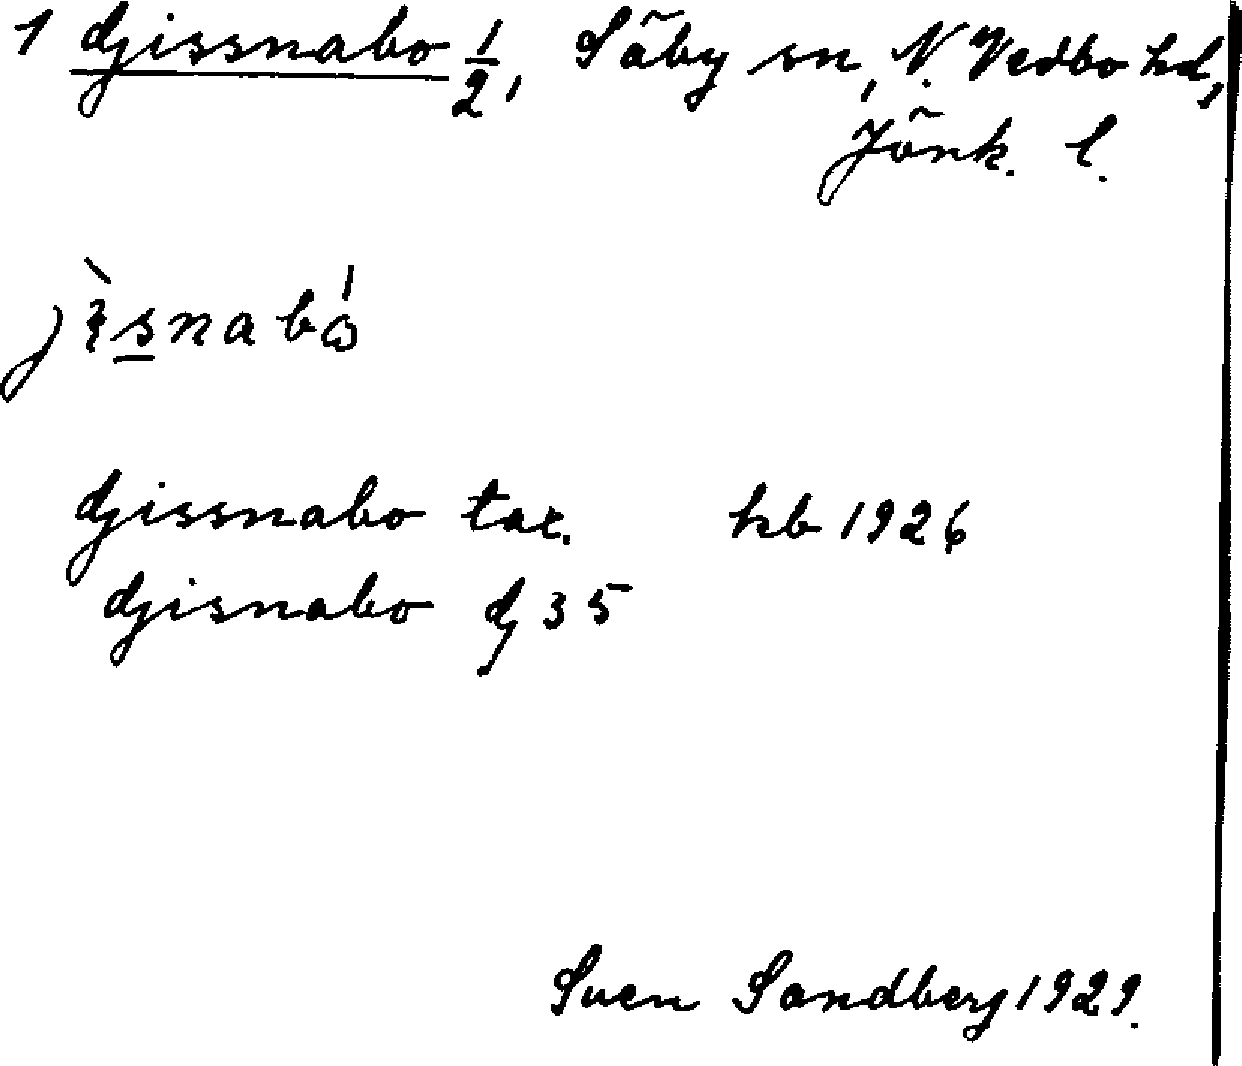 1 Gissnabo 1/2, Säby sn, N. Vedbo hd,
Jönk. l.
jìsnabó
Gissnabo tax. hb 1926
Gisnabo G 35
Sven Sandberg 1929.